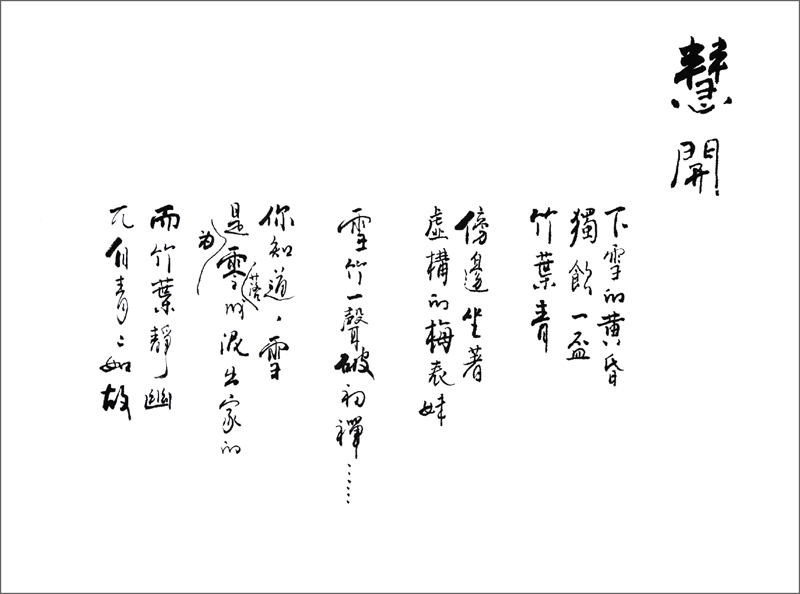 慧開
下雪的黄昏
獨飲一盃
竹葉青
傍邊坐著
虛構的梅表妹
雪竹一聲破初禪……
你知道，雪
是為零落出家的
而竹葉靜幽
兀自青〻如故